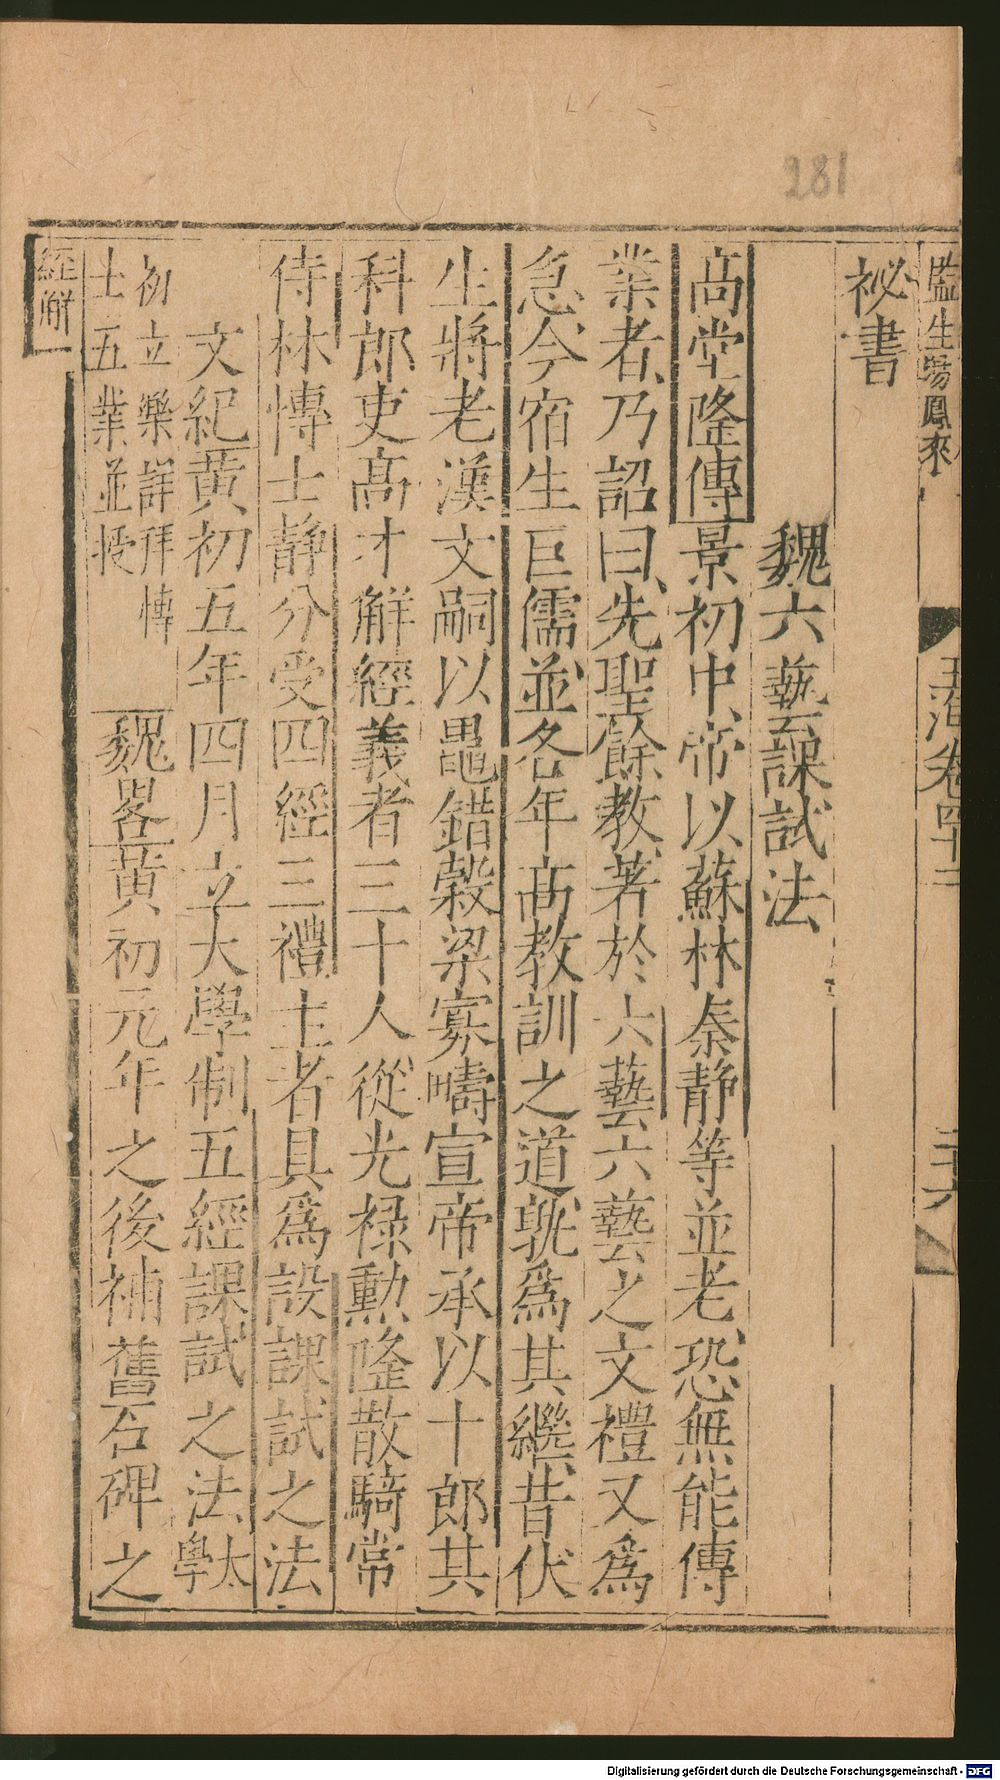 281
監生場鳳來
玉海卷四十二
二十六
祕書
魏六藝課試法
高堂隆傳景初中帝以蘇林秦靜等並老恐無能傳
業者乃詔曰先聖餘教著於六藝六藝之文禮又爲
急今宿生巨儒並各年高教訓之道孰爲其繼昔伏
生將老漢文嗣以鼂錯榖梁寡疇宣帝承以十郎其
科郎吏高才解經義者三十人從光祿勲隆散騎常
侍林博士靜分受四經三禮主者具爲設課試之法
文紀黄初五年四月立太學制五經課試之法太學
初立樂詳拜博
士五業並授
魏畧黄初元年之後補舊石碑之
經解
Digitalisierung gefördert durch die Deutsche Forschungsgemeinschaft - DFG